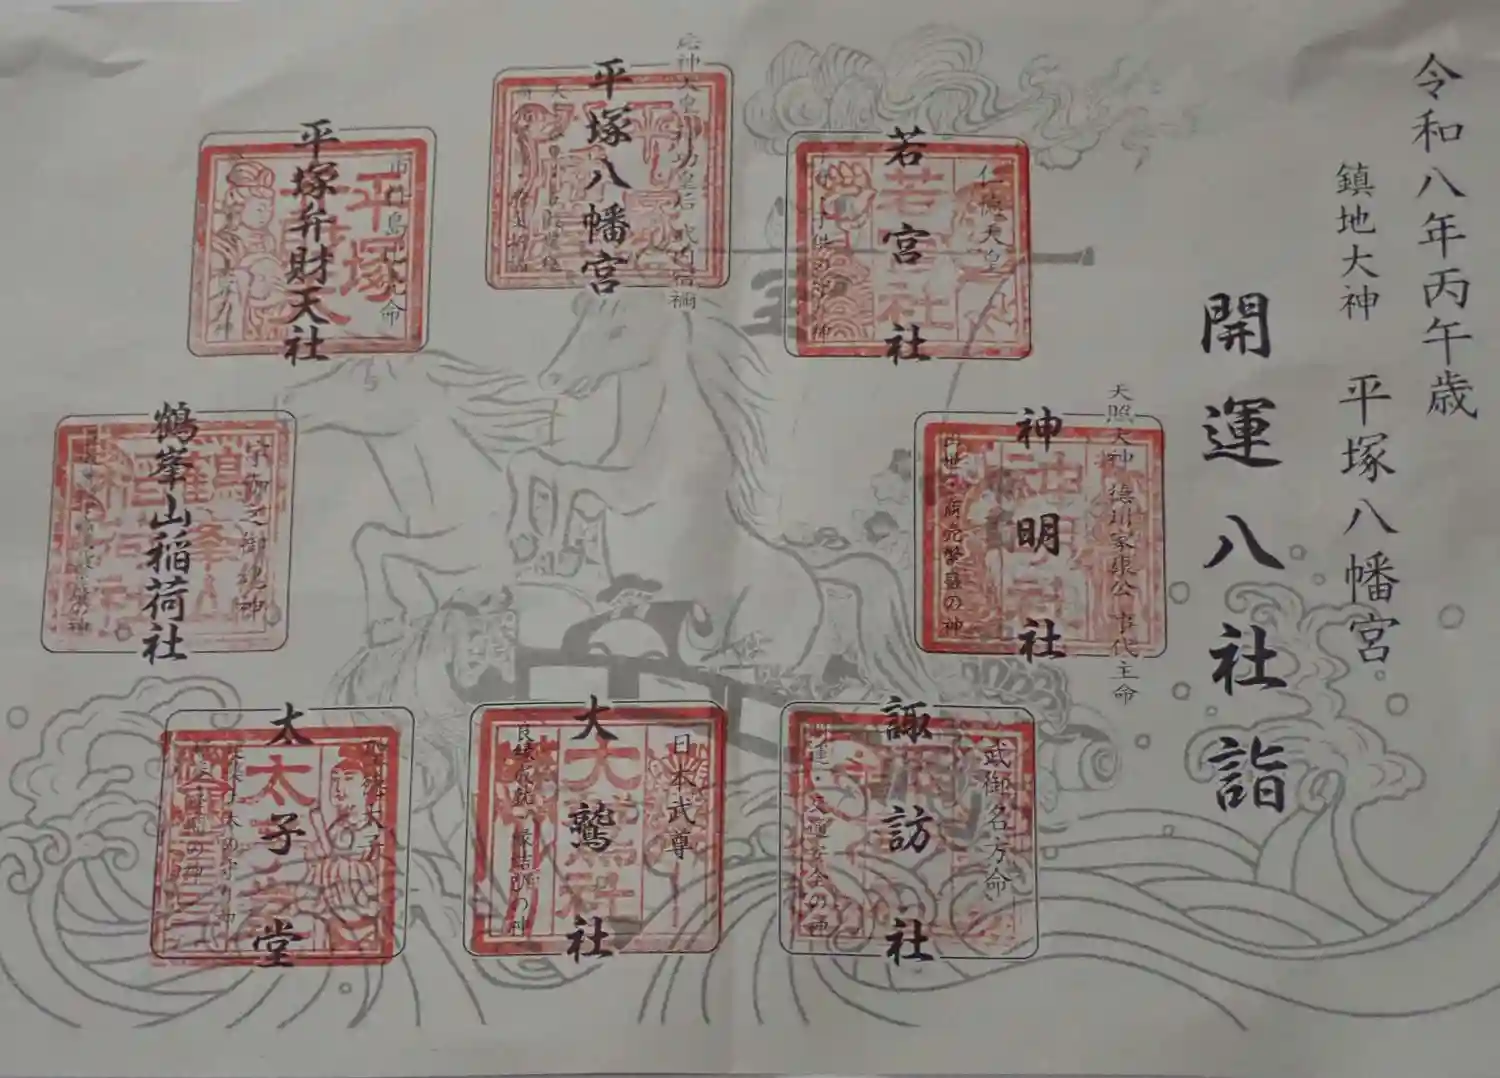 令和八年丙午歳
鎮地大神 平塚八幡宮
開運八社詣
平塚八幡宮
応神天皇 神功皇后 武内宿禰
若宮社
仁徳天皇
神明社
天照大神 徳川家康公 事代主命
商売繁盛の神
諏訪社
武御名方命
開運・交通安全の神
大鷲社
日本武尊
良縁成就・縁結びの神
太子堂
鶴峯山稲荷社
宇迦之御魂神
平塚弁財天社
市杵島比売命